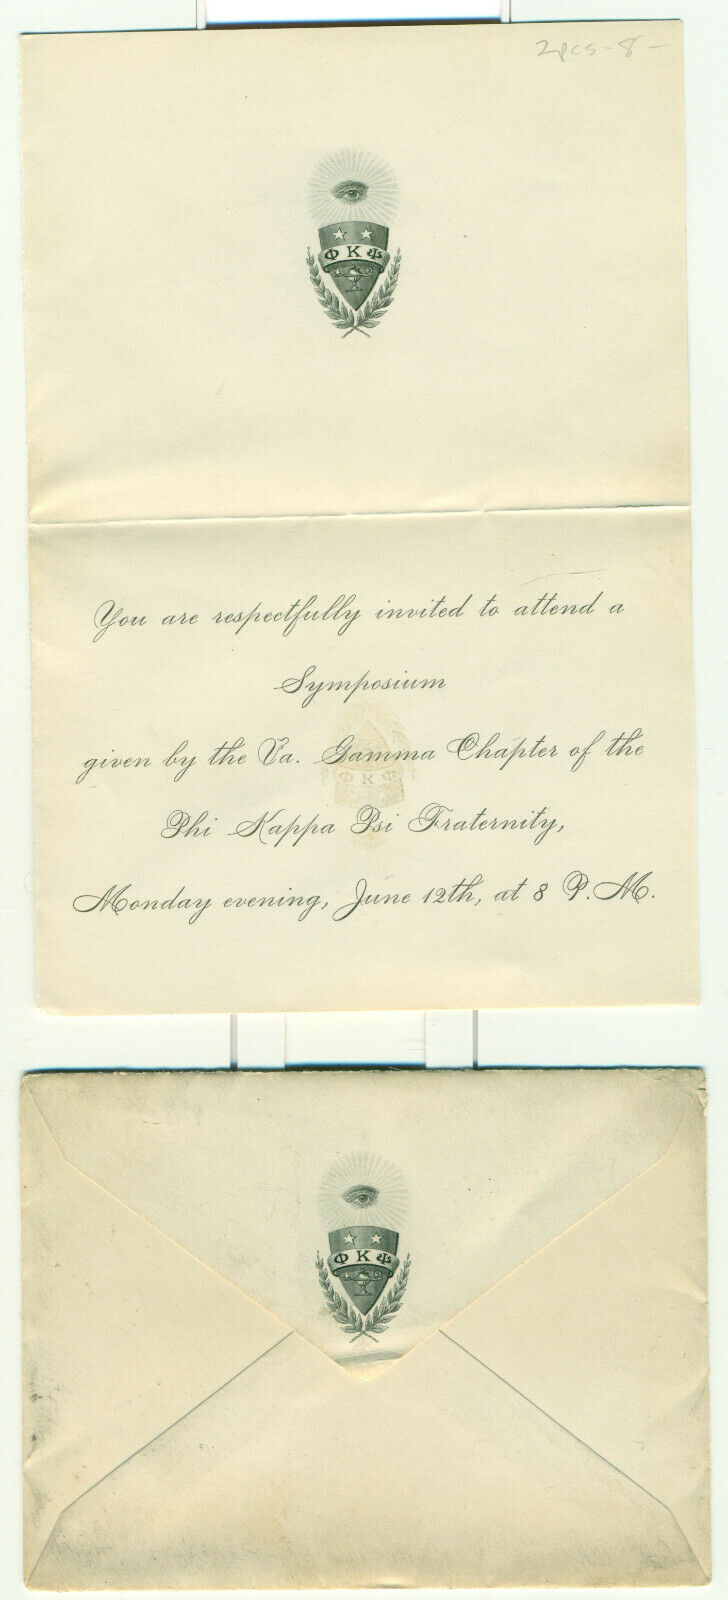 2pcs - 8 -
Φ Κ Ψ
You are respectfully invited to attend a
Symposium
given by the Va. Gamma Chapter of the
Phi Kappa Psi Fraternity,
Monday evening, June 12th, at 8 P.M.
Φ Κ Ψ